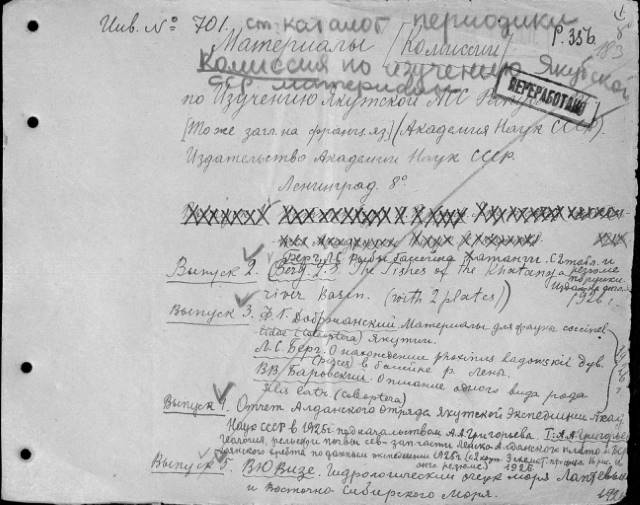 Инв. № 701. ст. каталог периодики
Р. 356
183
Материалы [Комиссии]
Комиссия по изучению Якутской
АССР. материалы
ПЕРЕРАБОТАНО
по Изучению Якутской АСС
[То же загл. на франц. яз.] (Академия Наук СССР).
Издательство Академии Наук СССР.
Ленинград. 8°.
Берг, Л.С. Рыбы бассейна Хатанги. С 2 табл. и
Выпуск 2. (Berg L.S. The fishes of the Khatanga резюме
river Basin. (with 2 plates)) 1926 г.
Выпуск 3. Ф.Г. Добржанский Материалы для фауны coccinel-
lidae (Coleoptera) Якутии.
Л.С. Берг. О нахождении phoxinus lagowskii dyb.
(Pisces) в бассейне р. Лена.
В.В. Баровский. Описание одного вида рода
(Coleoptera)
Выпуск 4. Отчет Алданского Отряда Якутской Экспедиции Акад.
Наук СССР в 1925 г. под начальством А.А. Григорьева. I: А.А. Григорьев
Геология, рельеф и почвы сев.-зап. части Ленско-Алданского плато и
хребта по данным экспедиции 1925 г.
1926.
Выпуск 5. В.Ю. Визе. Гидрологический очерк моря Лаптевых
и Восточно-Сибирского Моря. 1926